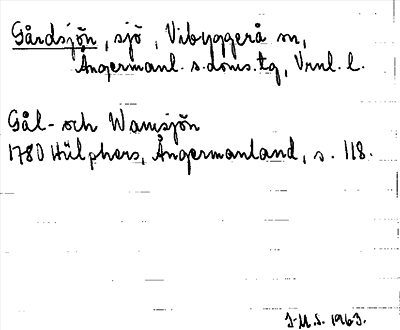 Gårdsjön, sjö, Vibyggerå sn,
Ångermanl. s.doms.tg, Vrnl. l.
Gål- och Wamsjön
1780 Hülphers, Ångermanland, s. 118.
J-M.S. 1963.